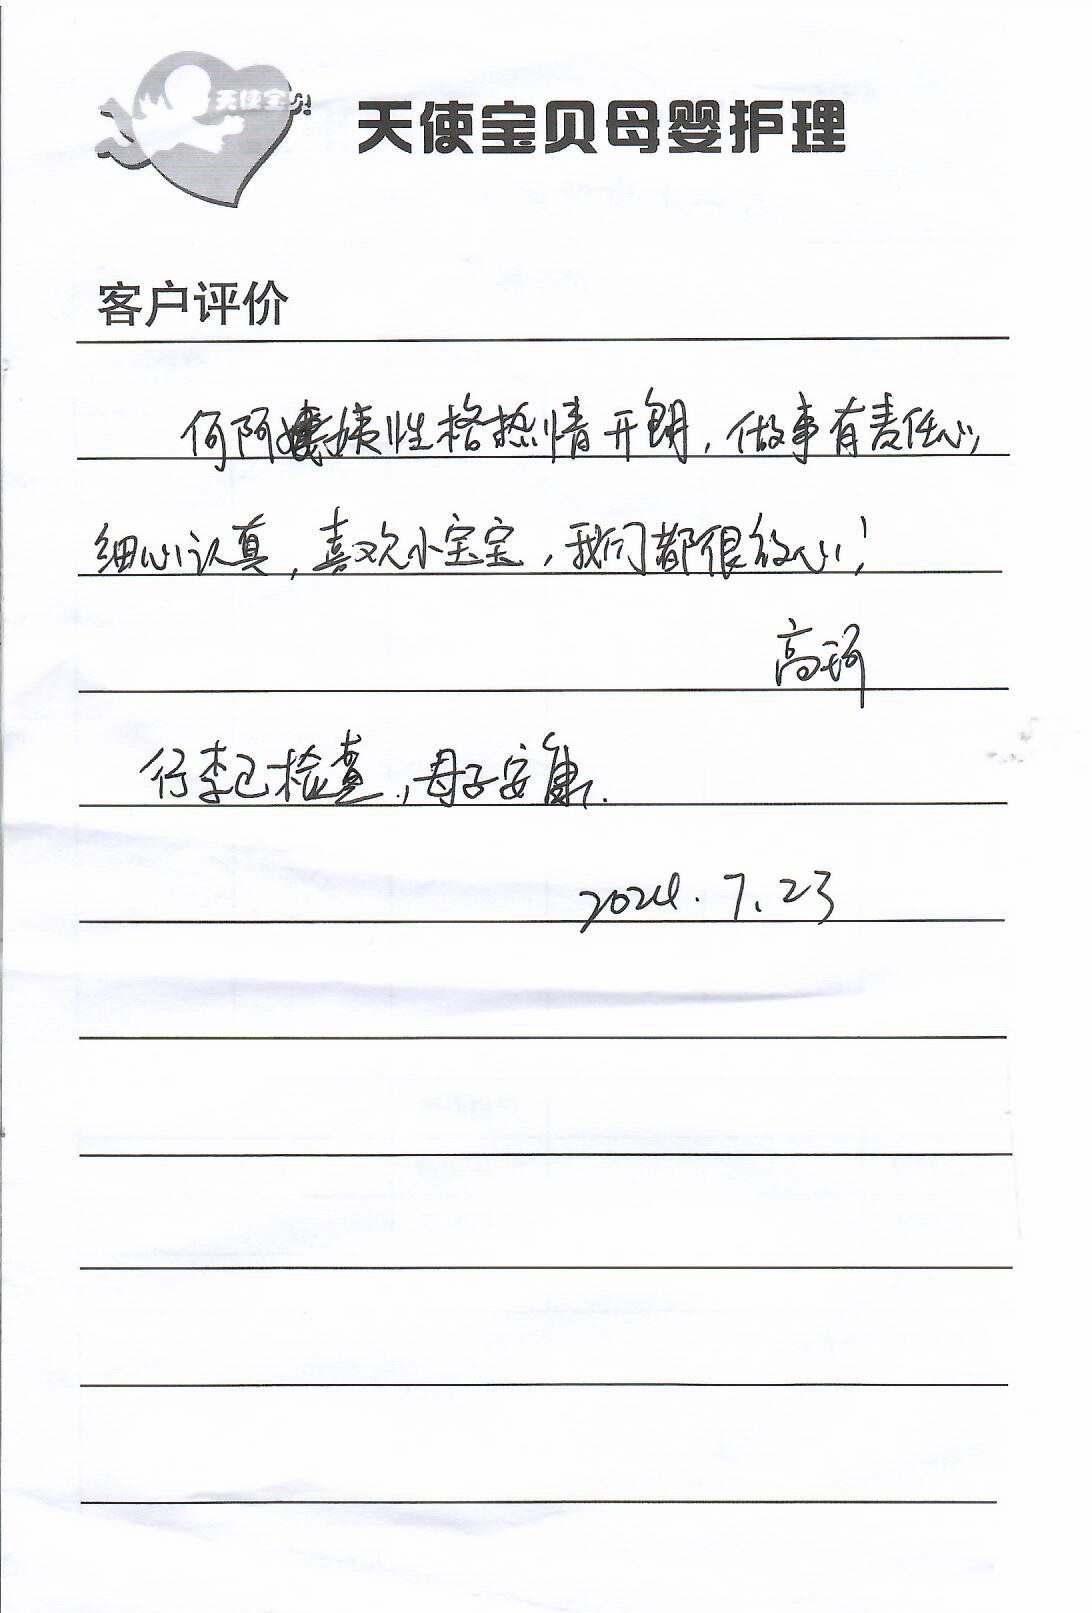 天使宝贝
天使宝贝母婴护理
客户评价
何阿姨性格热情开朗，做事有责任心，
细心认真，喜欢小宝宝，我们都很放心！
高珂
行李已检查，母子安康.
2024.7.23